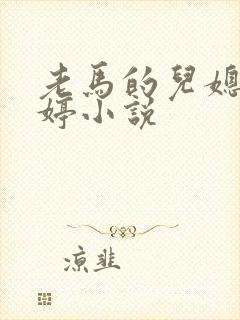 老馬的兒媳
婷小說
涼韭